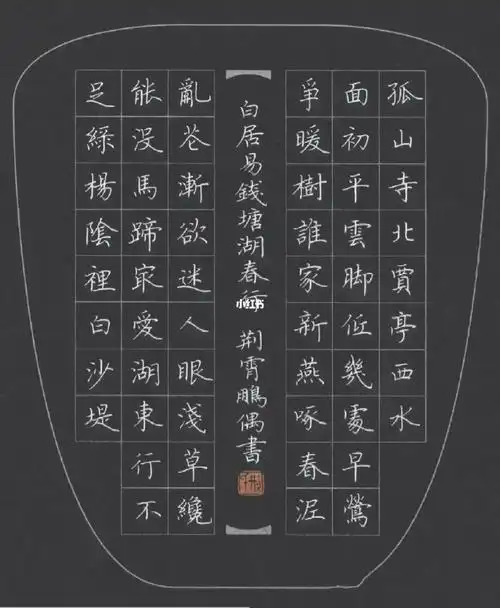 孤山寺北賈亭西水
面初平雲脚低幾處早鶯
爭暖樹誰家新燕啄春泥
白居易錢塘湖春行 荆霄鵬偶書
小红书
亂花漸欲迷人眼淺草纔
能没馬蹄冣愛湖東行不
足綠楊陰裡白沙堤